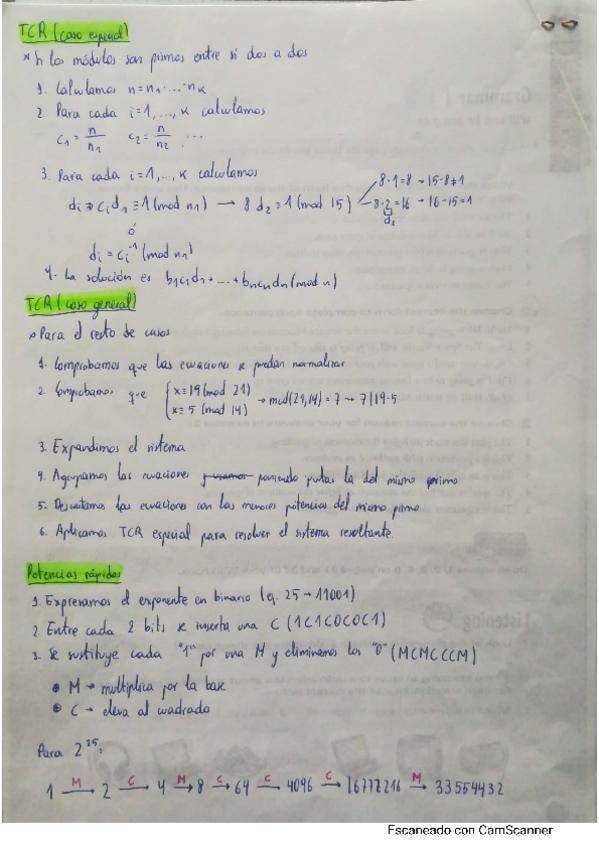 TCR (caso especial)
* Si los módulos son primos entre sí dos a dos
1. Calculamos n=n₁·...·nₖ
2. Para cada i=1, ..., k calculamos
c₁ = n/n₁   c₂ = n/n₂   ...
3. Para cada i=1, ..., k calculamos
8·1=8 → 15-8≠1
di ⇒ cᵢd₁ ≡ 1 (mod n₁) → 8 d₂ ≡ 1 (mod 15) 8·2=16 → 16-15=1
d₂
ó
di = cᵢ⁻¹ (mod n₁)
4. La solución es b₁c₁d₁ + ... + bₙcₙdₙ (mod n)
TCR (caso general)
* Para el resto de casos
1. Comprobamos que las ecuaciones se puedan normalizar
2. Comprobamos que { x≡19 (mod 21)
x≡5 (mod 14) → mcd(21,14) = 7 → 7|19-5
3. Expandimos el sistema
4. Agrupamos las ecuaciones poniendo juntas la del mismo primo
5. Descartamos las ecuaciones con las menores potencias del mismo primo
6. Aplicamos TCR especial para resolver el sistema resultante.
Potencias rápidas
1. Expresamos el exponente en binario (ej. 25 → 11001)
2. Entre cada 2 bits se inserta una C (1C1C0C0C1)
3. Se sustituye cada "1" por una M y eliminamos los "0" (MCMCCCM)
• M → multiplica por la base
• C → eleva al cuadrado
Para 2²⁵:
1 —M→ 2 —C→ 4 —M→ 8 —C→ 64 —C→ 4096 —C→ 16777216 —M→ 33554432
Escaneado con CamScanner